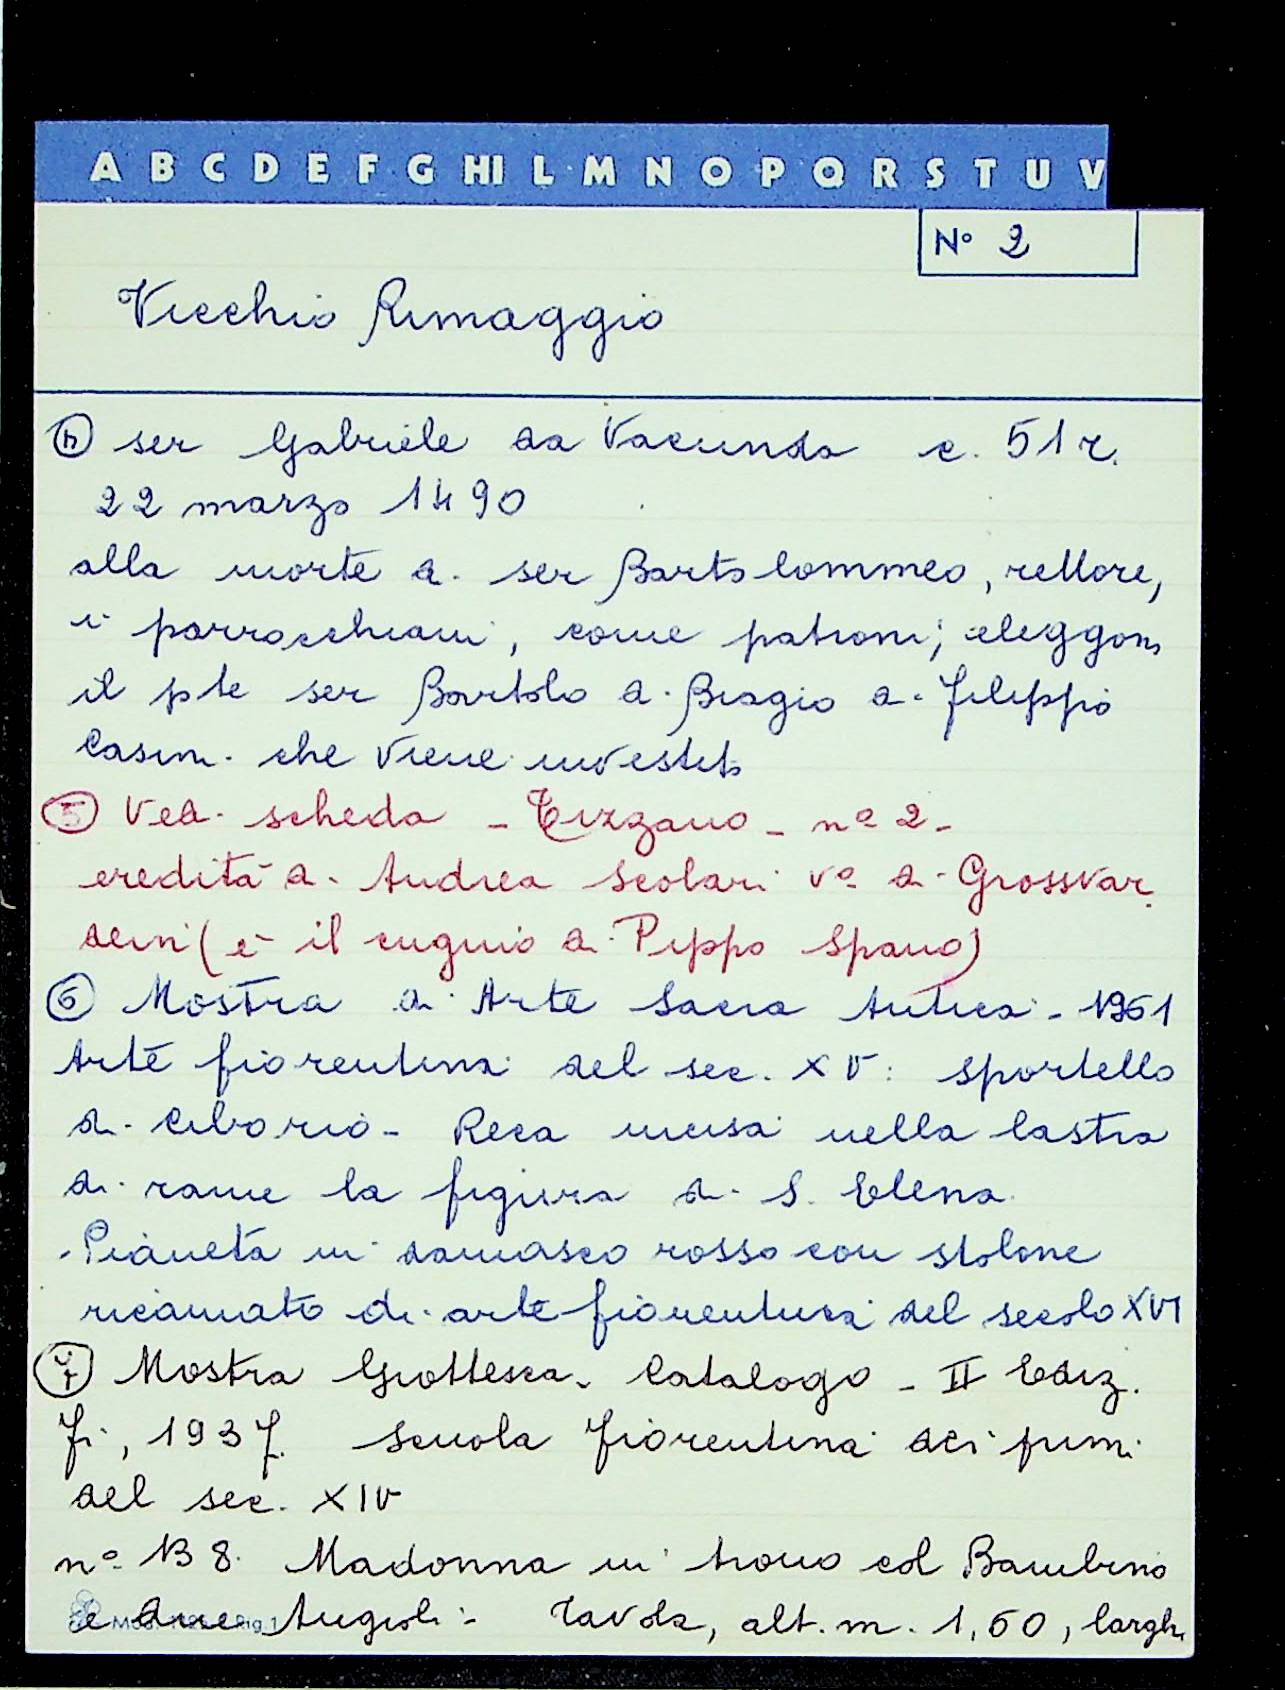 A B C D E F G HI L M N O P Q R S T U V
N° 2
Vicchio Rimaggio
④ ser Gabriele da Vacunda c. 51 r.
22 marzo 1490
alla morte di ser Bartolommeo, rettore,
i parrocchiani, come patroni, eleggono
il pte ser Bartolo di Biagio di Filippo
Casini che viene investito
⑤ Ved. scheda - Tizzano - n° 2 -
eredità di Andrea Scolari v° di Grossvar
dein (è il cugino di Pippo Spano)
⑥ Mostra di Arte Sacra Antica - 1961
Arte fiorentina del sec. XV: sportello
di ciborio - Reca incisa nella lastra
di rame la figura di S. Elena
- Pianeta in damasco rosso con stolone
ricamato di arte fiorentina del secolo XVI
⑦ Mostra Giottesca - Catalogo - II Ediz.
Fi, 1937. Scuola fiorentina dei primi
del sec. XIV
n° 138. Madonna in trono col Bambino
e due Angioli - Tavola, alt. m. 1,60, largh.